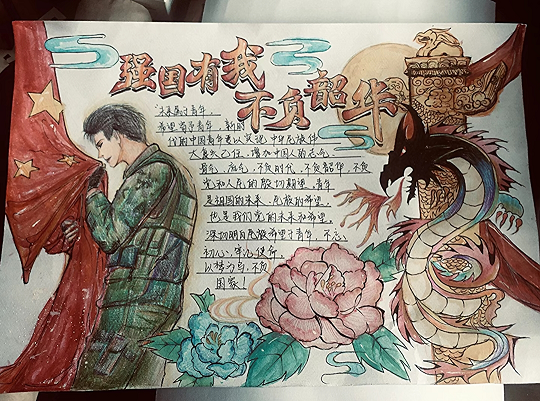 强国有我
不负韶华
"未来属于青年，
希望寄予青年，新时
代的中国青年要以实现中华民族伟
大复兴为己任，增加中国人的志气、
骨气、底气，不负时代，不负韶华，不负
党和人民的殷切期望。青年
是祖国的未来、民族的希望，
也是我们党的未来和希望。
民族希望于青年，不忘
初心，牢记使命，
以梦为马，不负
国家！